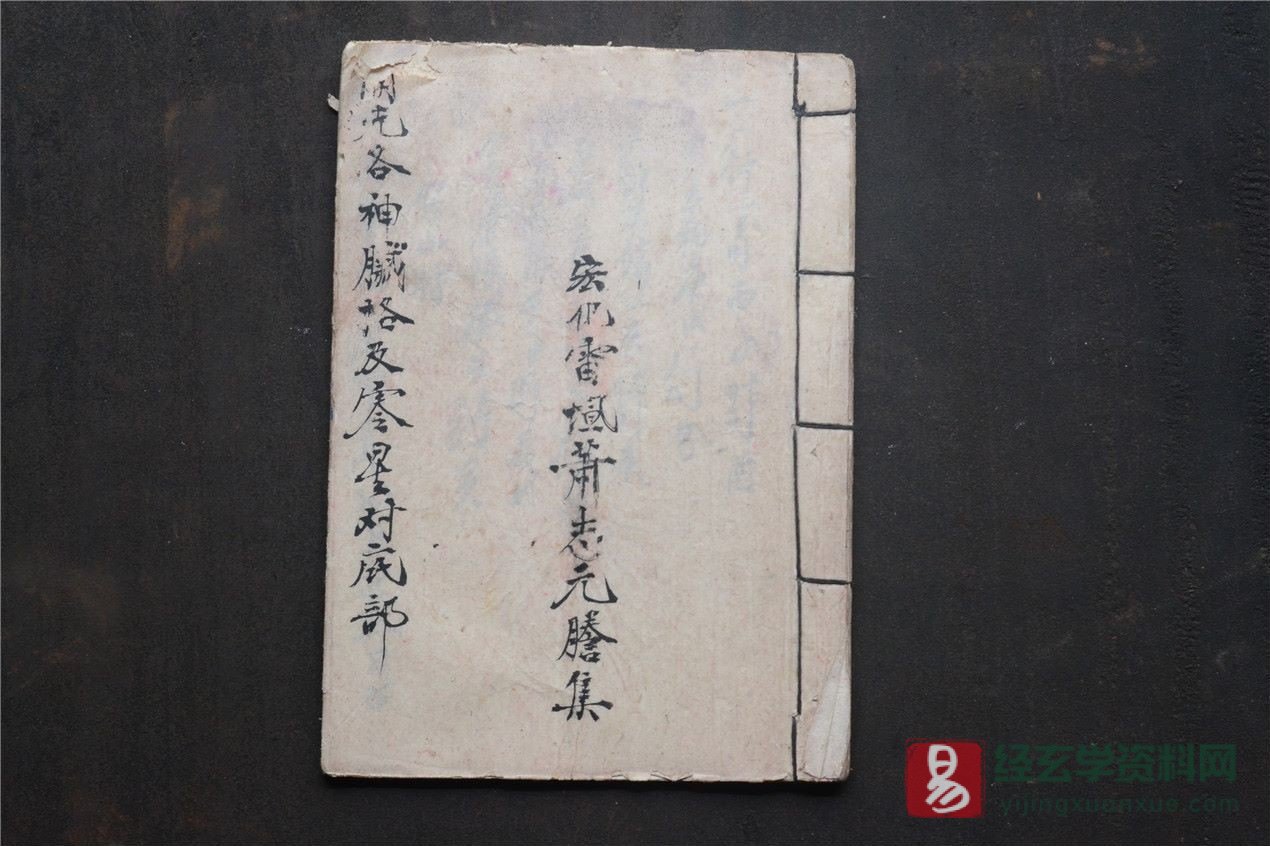 宏们雷蕭志元謄集
開光各神臟格及零星对底部
易
经玄学资料网
yijingxuanxue.com